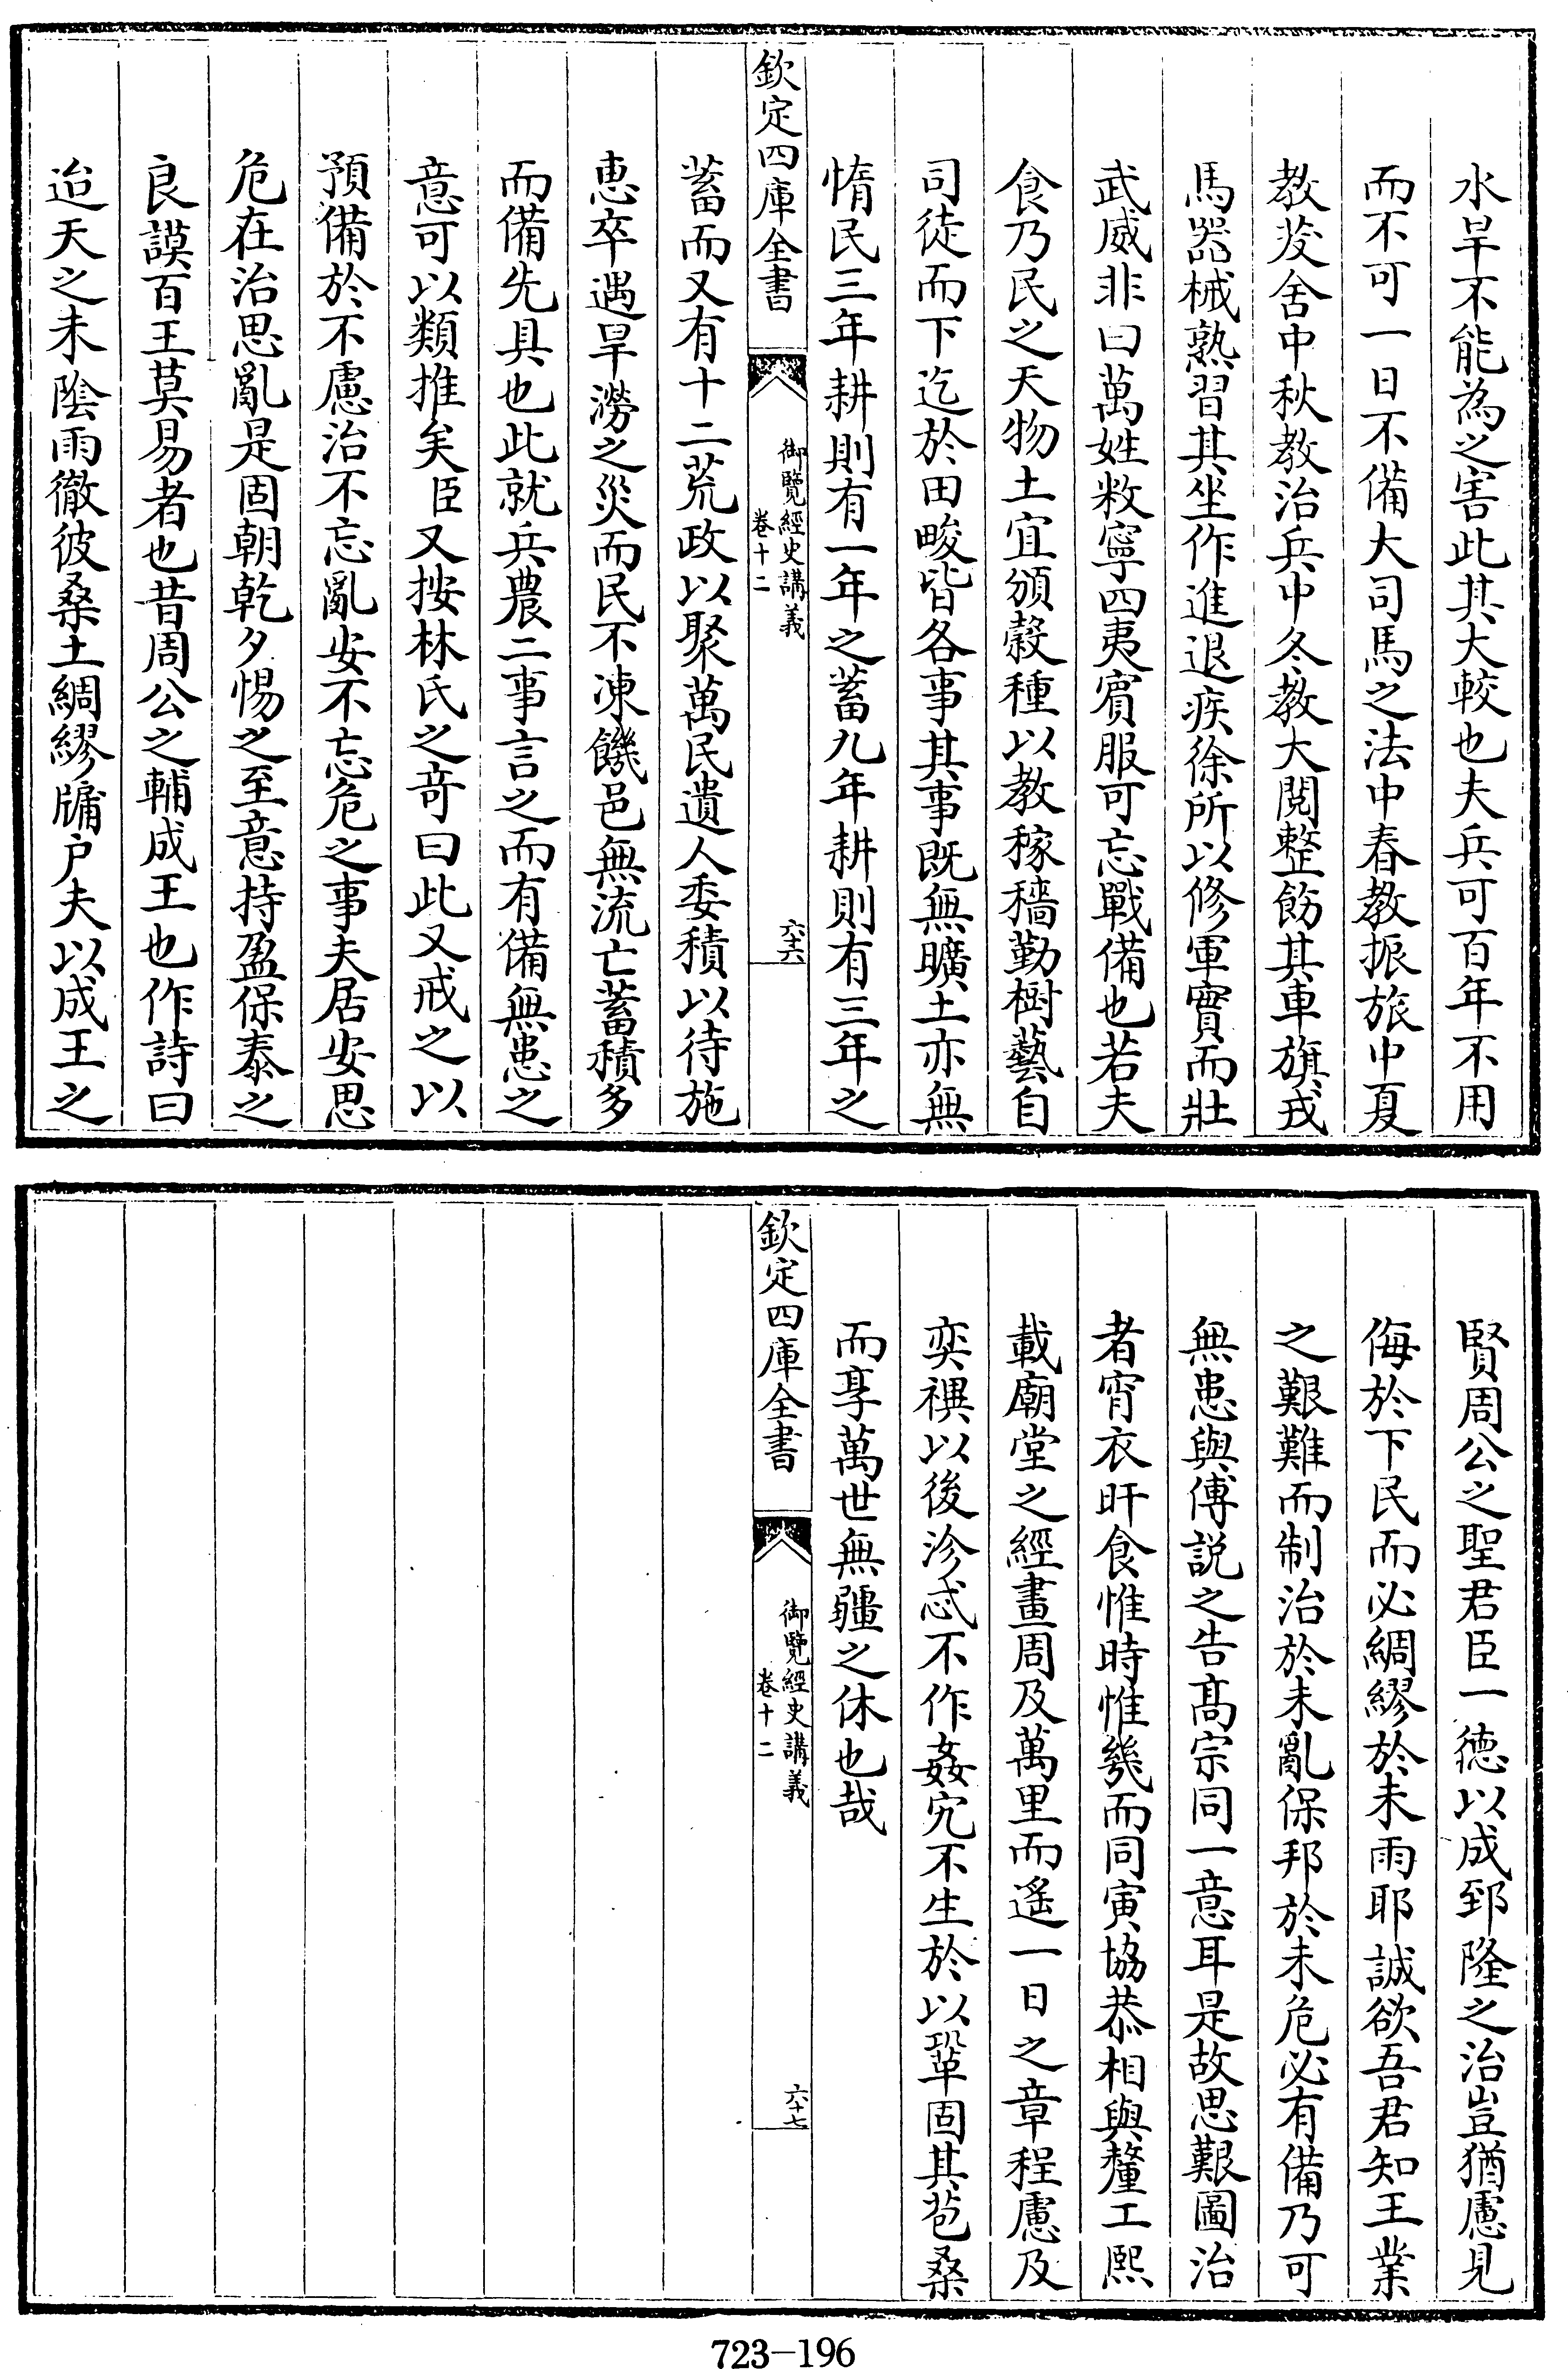 水旱不能為之害此其大較也夫兵可百年不用
而不可一日不備大司馬之法中春教振旅中夏
教茇舍中秋教治兵中冬教大閱整飭其車旗戎
馬器械熟習其坐作進退疾徐所以修軍實而壯
武威非曰萬姓敉寧四夷賓服可忘戰備也若夫
食乃民之天物土宜頒穀種以教稼穡勤樹藝自
司徒而下迄於田畯皆各事其事既無曠土亦無
惰民三年耕則有一年之蓄九年耕則有三年之
欽定四庫全書
御覽經史講義
卷十二
六十六
蓄而又有十二荒政以聚萬民遺人委積以待施
惠卒遇旱澇之災而民不凍饑邑無流亡蓄積多
而備先具也此就兵農二事言之而有備無患之
意可以類推矣臣又按林氏之竒曰此又戒之以
預備於不慮治不忘亂安不忘危之事夫居安思
危在治思亂是固朝乾夕惕之至意持盈保泰之
良謨百王莫易者也昔周公之輔成王也作詩曰
迨天之未陰雨徹彼桑土綢繆牖户夫以成王之
賢周公之聖君臣一德以成郅隆之治豈猶慮見
侮於下民而必綢繆於未雨耶誠欲吾君知王業
之艱難而制治於未亂保邦於未危必有備乃可
無患與傅説之告髙宗同一意耳是故思艱圖治
者宵衣旰食惟時惟幾而同寅協恭相與釐工熙
載廟堂之經畫周及萬里而遙一日之章程慮及
奕禩以後沴忒不作姦宄不生於以鞏固其苞桑
而享萬世無疆之休也哉
欽定四庫全書
御覽經史講義
卷十二
六十七
723-196